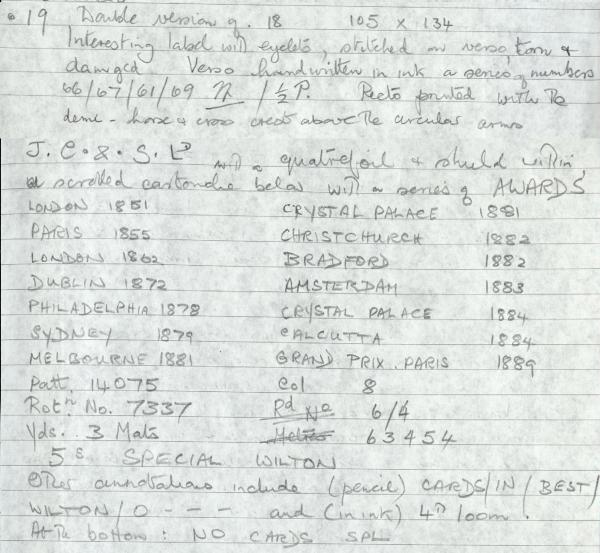 19 Double version of 18 105 x 134
Interesting label with eyelets, stitched on verso, torn &
damaged Verso handwritten in ink a series of numbers
66/67/61/69 /½ P. Recto printed with the
demi-horse & cross crest above the circular arms
J. C. & . S. Lᴰ with a quatrefoil & shield within
a scrolled cartouche below with a series of AWARDS
LONDON 1851 CRYSTAL PALACE 1881
PARIS 1855 CHRISTCHURCH 1882
LONDON 1862 BRADFORD 1882
DUBLIN 1872 AMSTERDAM 1883
PHILADELPHIA 1878 CRYSTAL PALACE 1884
SYDNEY 1879 CALCUTTA 1884
MELBOURNE 1881 GRAND PRIX. PARIS 1889
Patt. 14075 Col 8
Rotⁿ No. 7337 Rd No 6/4
Yds. 3 Mats 63454
5s SPECIAL WILTON
Other annotations include (pencil) CARDS/IN/BEST/
WILTON/0 - - - and (in ink) 4th loom.
At the bottom: NO CARDS SPL